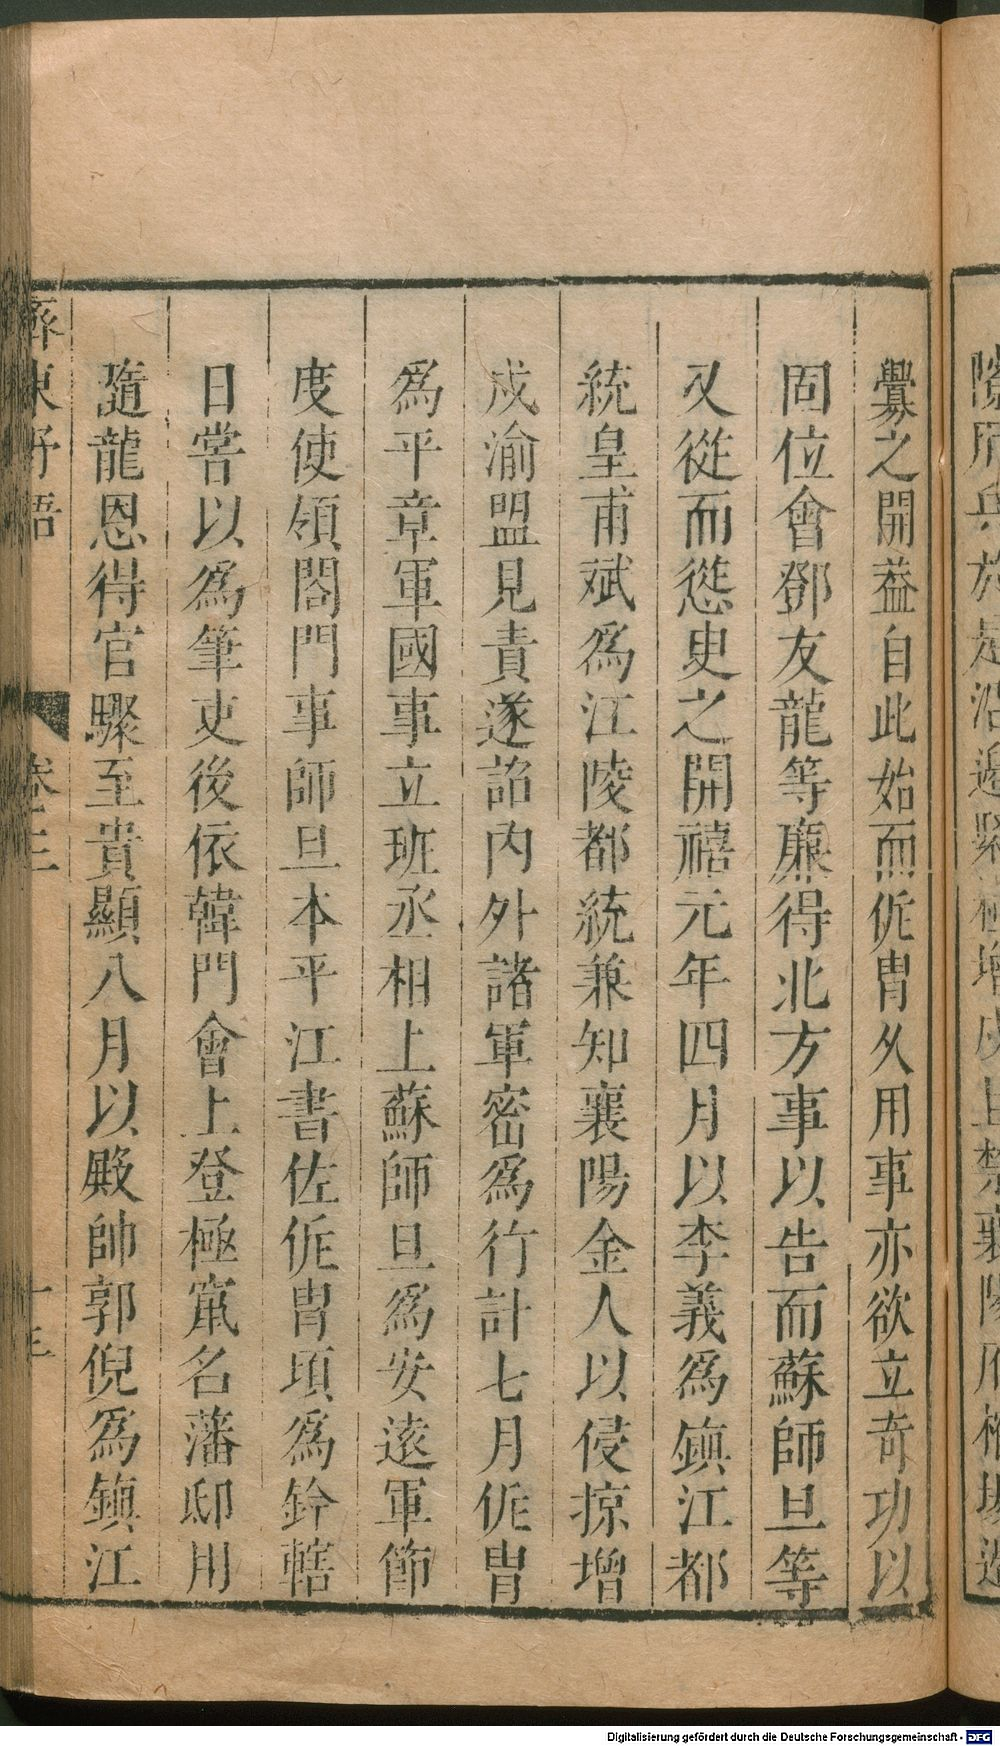 釁之開葢自此始而侂胄久用事亦欲立奇功以
固位會鄧友龍等廉得北方事以告而蘇師旦等
又從而慫㬰之開禧元年四月以李義爲鎮江都
統皇甫斌爲江陵都統兼知襄陽金人以侵掠增
戍渝盟見責遂詔内外諸軍密爲行計七月侂胄
爲平章軍國事立班丞相上蘇師旦爲安遠軍節
度使領閤門事師旦本平江書佐侂胄頃爲鈐轄
日嘗以爲筆吏後依韓門會上登極竄名藩邸用
隨龍恩得官驟至貴顯八月以殿帥郭倪爲鎮江
齊東野語
卷三
Digitalisierung gefördert durch die Deutsche Forschungsgemeinschaft - DFG